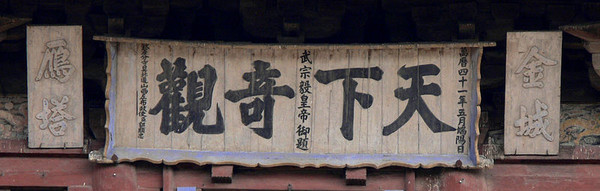 金城
萬曆四十一年五月端陽日
天下奇觀
武宗毅皇帝御題
雁塔